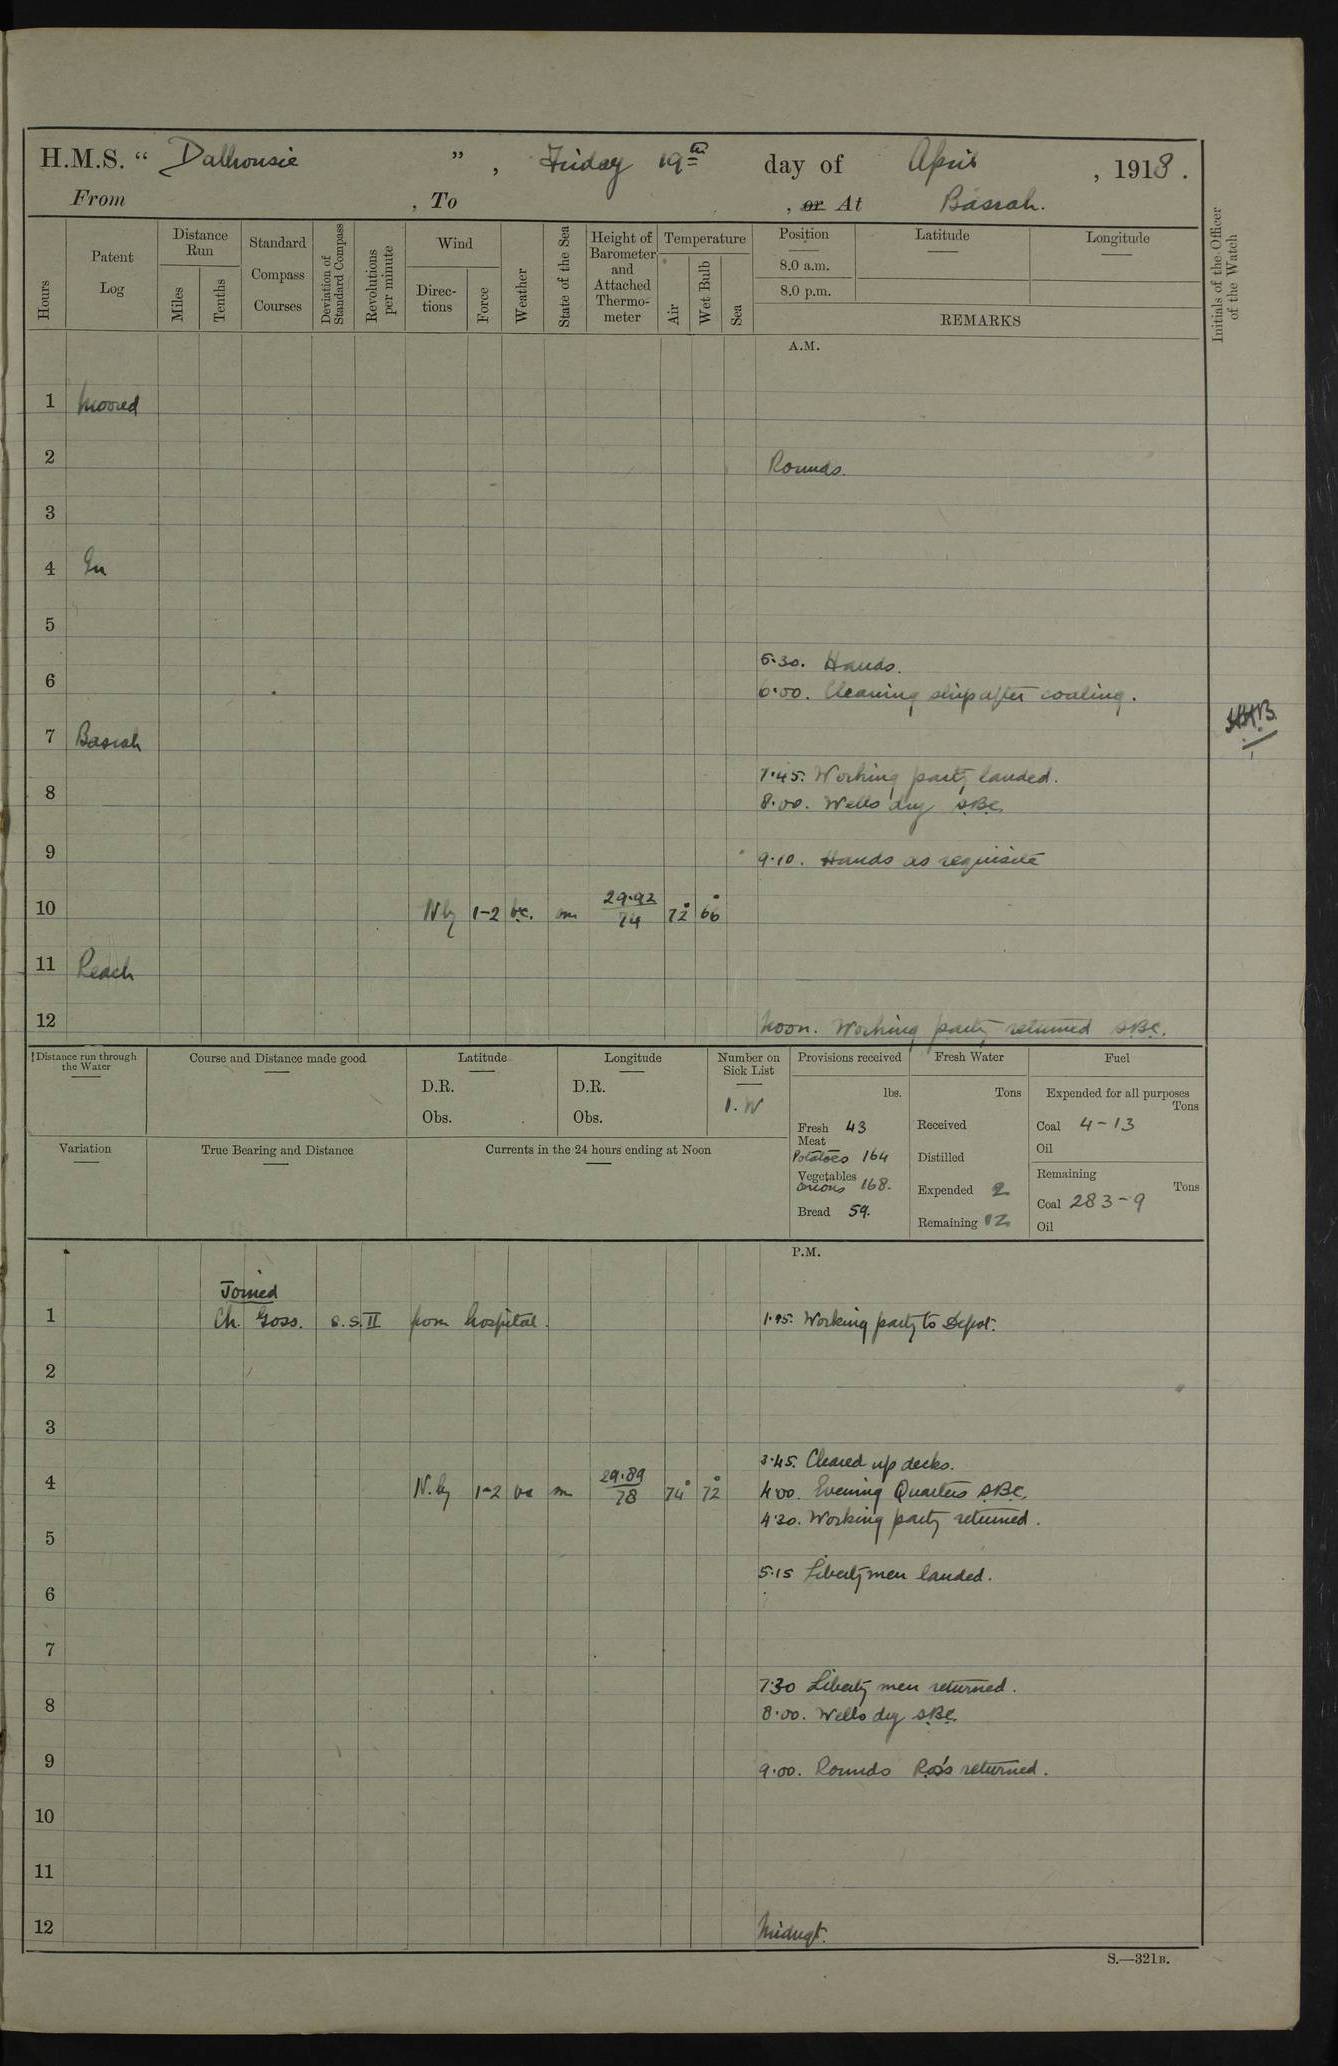 H.M.S. “ Dalhousie ” , Friday 19th day of April , 1918 .
From , To , or At Basrah.
Hours
Patent Log
Distance Run
Miles
Tenths
Standard Compass Courses
Deviation of Standard Compass
Revolutions per minute
Wind
Direc- tions
Force
Weather
State of the Sea
Height of Barometer and Attached Thermo- meter
Temperature
Air
Wet Bulb
Sea
Position
8.0 a.m.
8.0 p.m.
Latitude
Longitude
REMARKS
Initials of the Officer of the Watch
A.M.
1 Moored
2 Rounds.
3
4 In
5
5.30. Hands.
6 6.00. Cleaning ship after coaling.
7 Basrah
7.45. Working party landed.
8 8.00. Wells dry
9 9.10. Hands as requisite
10 N by 1-2 bc. m 29.92 74 72° 66°
11 Reach
12 Noon. Working party returned
Distance run through the Water
Course and Distance made good
Latitude
D.R.
Obs.
Longitude
D.R.
Obs.
Number on Sick List
1.
Variation
True Bearing and Distance
Currents in the 24 hours ending at Noon
Provisions received
lbs.
Fresh Meat 43
Potatoes 164
Vegetables
onions 168.
Bread 59.
Fresh Water
Tons
Received
Distilled
Expended 2
Remaining 12
Fuel
Expended for all purposes
Tons
Coal 4-13
Oil
Remaining
Tons
Coal 283-9
Oil
P.M.
Joined
1 Ch. Goss. S.S. II from hospital. Working party to Depot.
2
3
3.45. Cleared up decks.
4 N. by 1-2 bc m 29.89 78 74° 72° 4.00. Evening Quarters
4.30. Working party returned.
5
5.15 Liberty men landed.
6
7
7.30 Liberty men returned.
8 8.00. Wells dry
9 9.00. Rounds returned.
10
11
12 Midngt.
S.—321B.